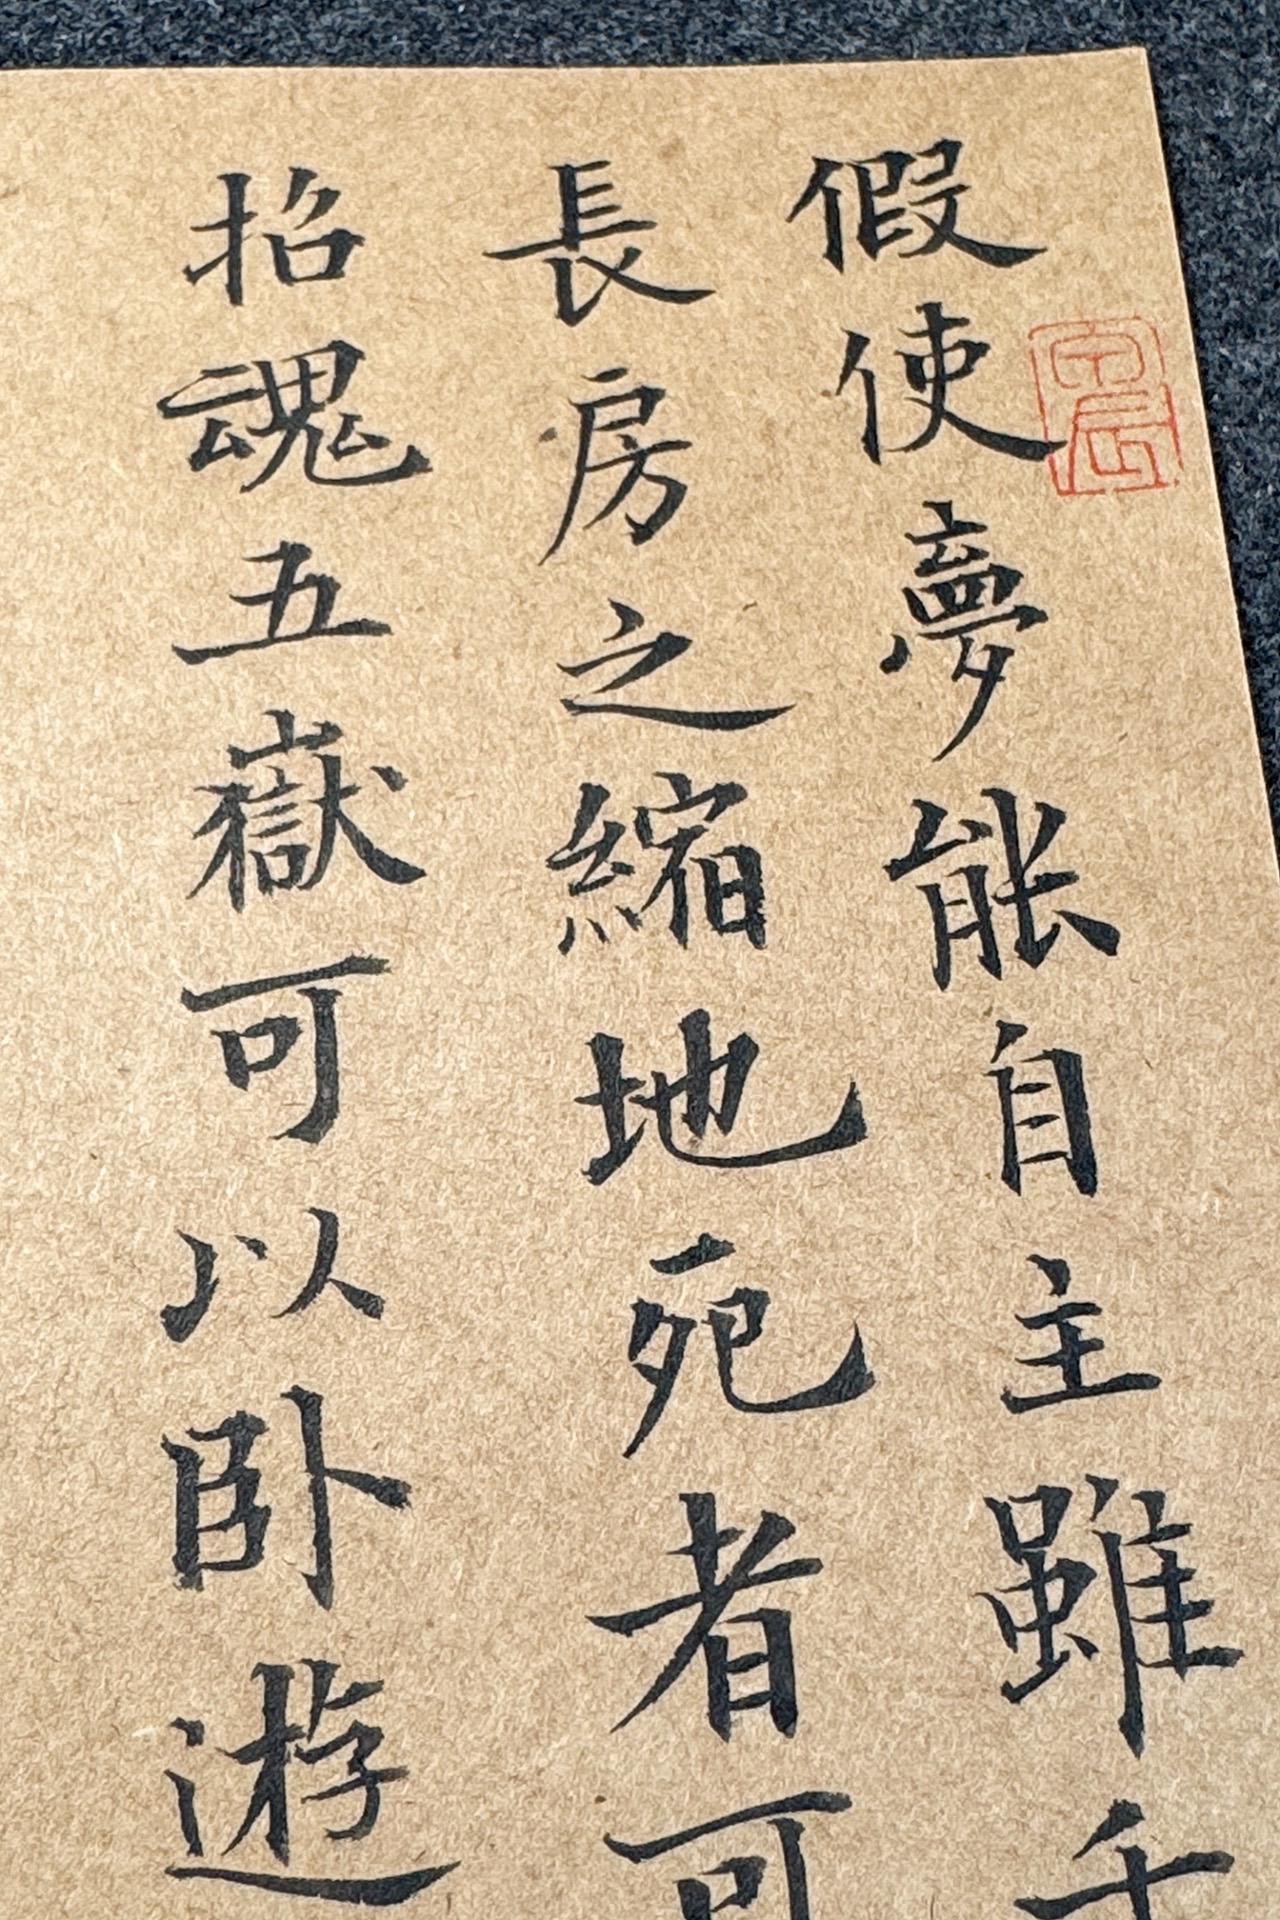 假使夢能自主雖千
長房之縮地死者可
招魂五嶽可以卧遊